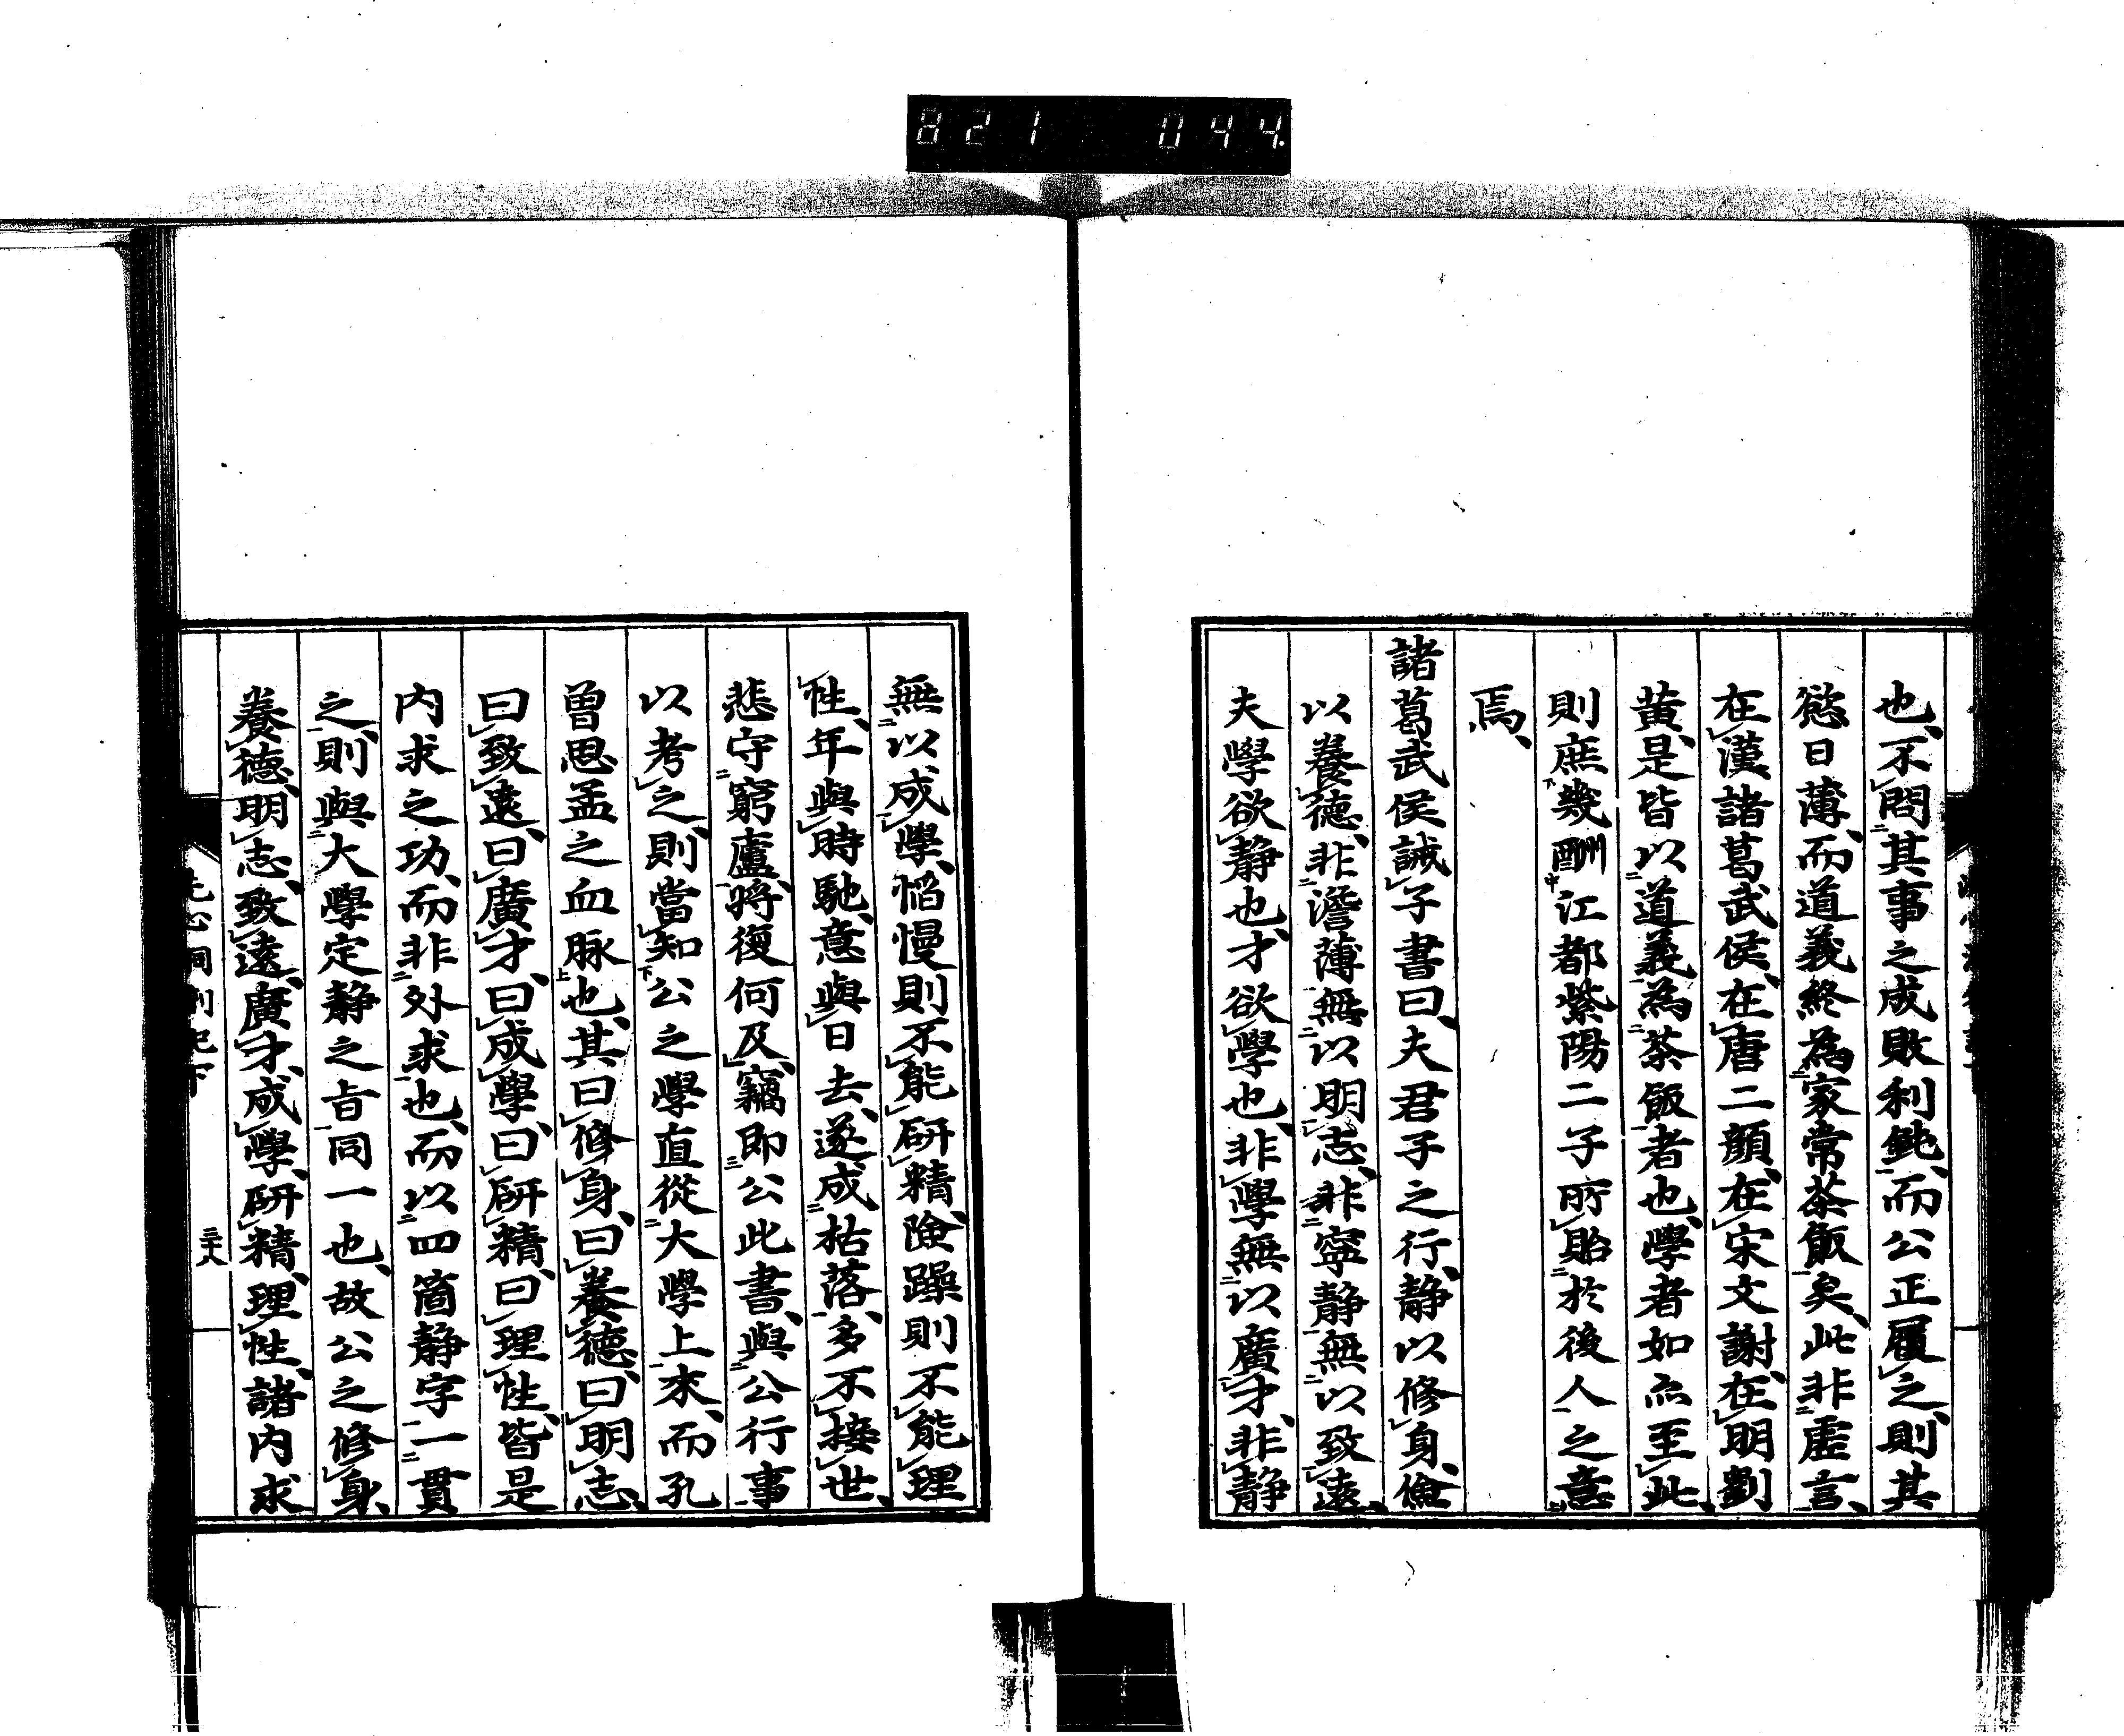 821 044.
也、不問其事之成敗利鈍、而公正履之、則其
慾日薄、而道義終為家常茶飯矣、此非虛言、
在漢諸葛武侯、在唐二顏、在宋文謝、在明劉
黃、是皆以道義為茶飯者也、學者如亦至此、
則庶幾酬江都紫陽二子所貽於後人之意
焉、
諸葛武侯誡子書曰、夫君子之行、静以修身、儉
以養德、非澹薄無以明志、非寧静無以致遠、
夫學欲静也、才欲學也、非學無以廣才、非静
無以成學、慆慢則不能研精、險躁則不能理
性、年與時馳、意與日去、遂成枯落、多不接世、
悲守窮廬、將復何及、竊即公此書、與公行事
以考之、則當知公之學直從大學上來、而孔
曾思孟之血脉也、其曰修身、曰養德、曰明志、
曰致遠、曰廣才、曰成學、曰研精、曰理性、皆是
内求之功、而非外求也、而以四箇静字一貫
之、則與大學定静之旨同一也、故公之修身、
養德、明志、致遠、廣才、成學、研精、理性、諸内求
洗心洞劄記下
三十八